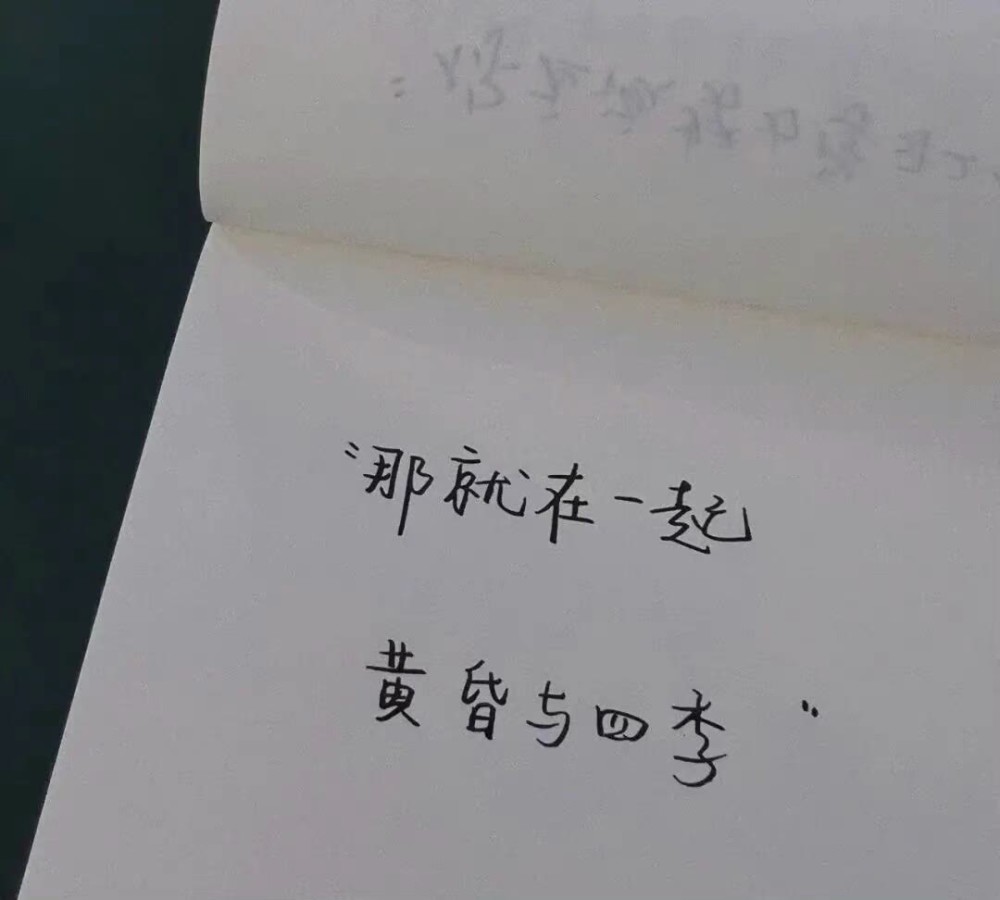 “那就在一起
黄昏与四季”